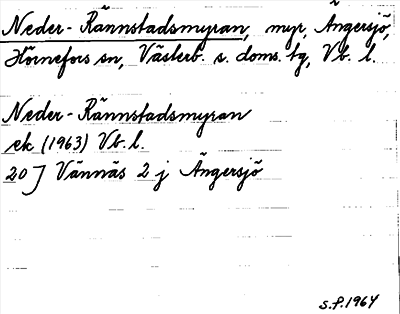 Neder-Rännstadsmyran, myr, Ängersjö,
Hörnefors sn, Västerb. s. doms. tg, Vb. l.
Neder-Rännstadsmyran
ek (1963) Vb. l.
20J Vännäs 2 j Ängersjö
S.P. 1964